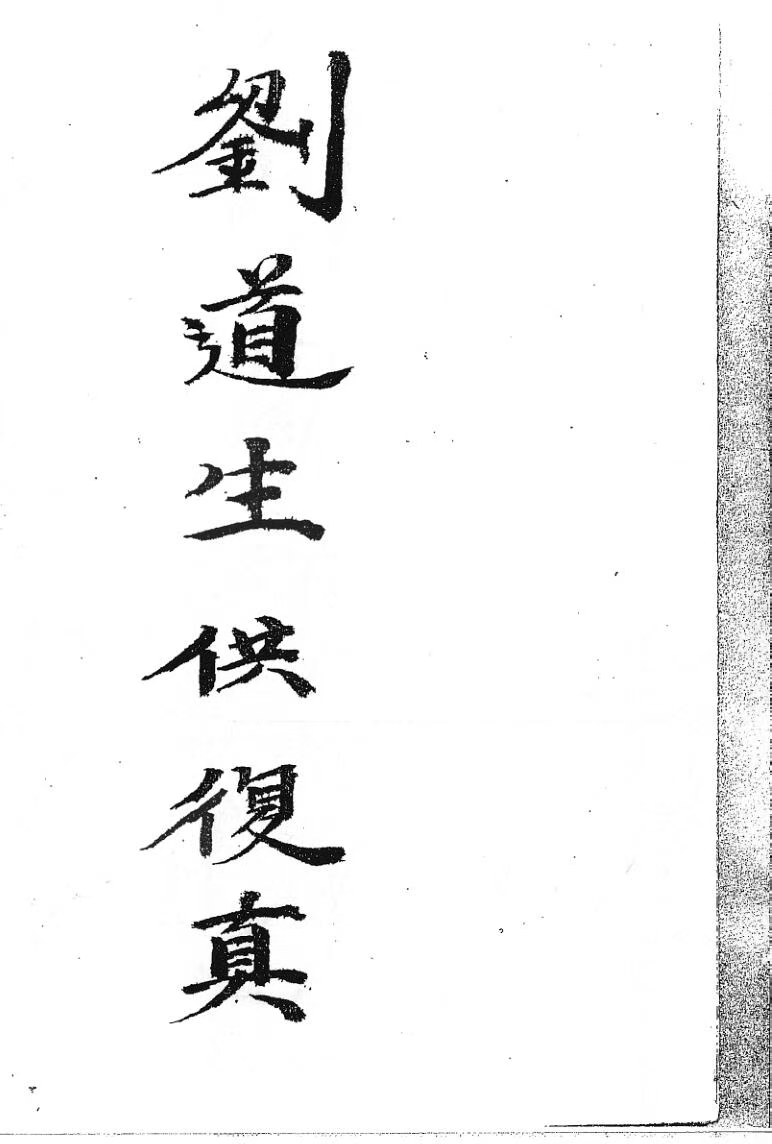 劉道生供復真